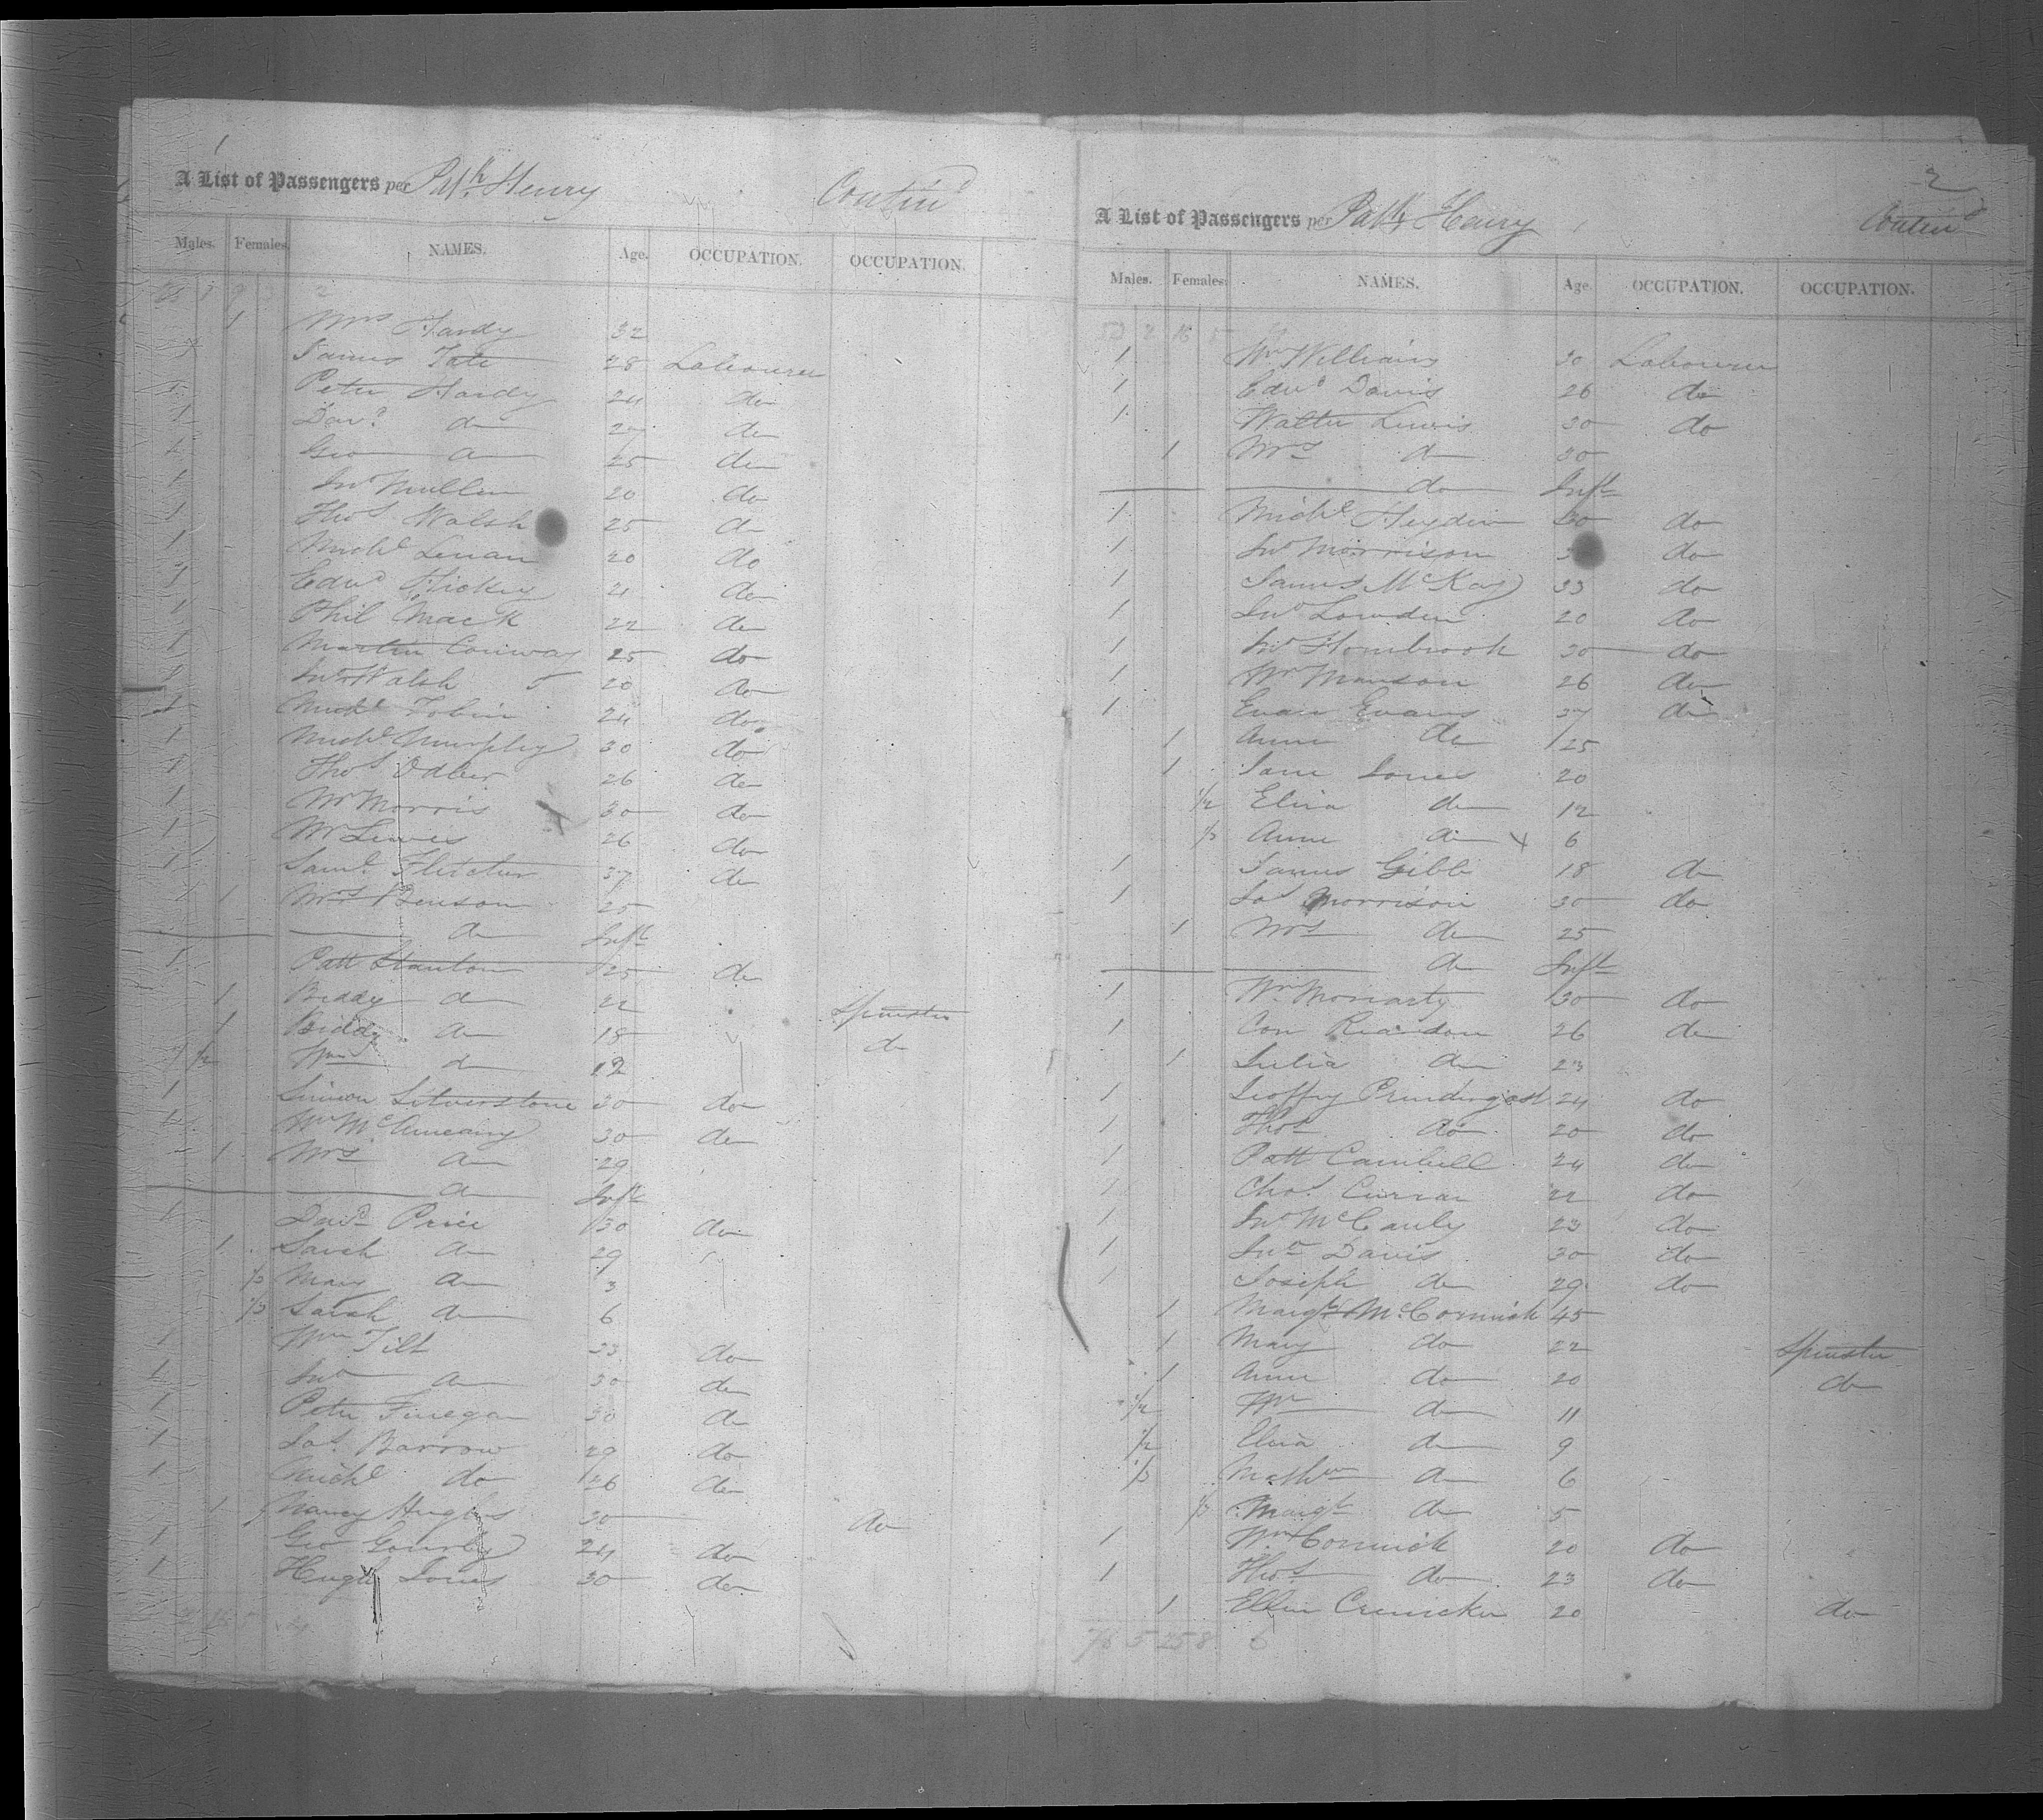 1
A List of Passengers per Patk. Henry Contind
Males. Females. NAMES. Age. OCCUPATION. OCCUPATION.
1 Mrs Hardy 32
1 James Tate 28 Labourer
1 Peter Hardy 24 do
1 Davd do 27 do
1 Geo do 25 do
1 Jno Mullen 20 do
1 Thos Walsh 25 do
1 Michl Lenan 20 do
1 Edwd Hickey 21 do
1 Phil Mack 22 do
1 Martin Conway 25 do
1 Jno Walsh 20 do
1 Michl Tobin 24 do
1 Michl Murphy 30 do
1 Thos 26 do
1 Wm Morris 30 do
1 Wm Lewis 26 do
1 Saml Fletcher 37 do
1 Mrs Benson 25
do Inft
1 Patt Stanton 25 do
1 Biddy do 22 Spinster
1 Biddy do 18 do
1/2 Wm do 12
1 Simion Silverstone 30 do
1 Wm 30 do
1 Mrs do 29
do Inft
1 Davd Price 30 do
1 Sarah do 29
1/3 Mary do 3
1/3 Sarah do 6
1 Wm Tilt 33 do
1 Jno do 30 do
1 Peter Finegan 30 do
1 Jas. Barrow 29 do
1 Michl do 26 do
1 Nancy Hughes 30 do
1 Geo Gourly 24 do
1 Hugh Jones 30 do
2
A List of Passengers per Patk Henry Contind
Males. Females. NAMES. Age. OCCUPATION. OCCUPATION.
52 2 16 5
1 Wm Williams 30 Labourer
1 Edwd Davis 26 do
1 Walter Lewis 30 do
1 Mrs do 30
do Inft
1 Michl Heyden 30 do
1 Jno Morrison do
1 James McKay 33 do
1 Jno Lowden 20 do
1 Jno Hornbrook 30 do
1 Wm Manson 26 do
1 Evan Evans 37 do
1 Anne do 25
1 Jane Jones 20
1/2 Eliza do 12
1/3 Anne do 6
1 James Gibb 18 do
1 Jas Morrison 30 do
1 Mrs do 25
do Inft
1 Wm Moriarty 30 do
1 Con Reardon 26 do
1 Julia do 23
1 Jeoffry Prindingast 24 do
1 Thos do 20 do
1 Patt Cambell 24 do
1 Chos. Curran 22 do
1 Jno McCauly 23 do
1 Jno Davis 30 do
1 Joseph do 29 do
1 Margt McCormick 45
1 Mary do 22 Spinster
1 Anne do 20 do
1/2 Wm do 11
1/2 Eliza do 9
1/3 Mathw do 6
1/3 Margt do 5
1 Wm Cormick 20 do
1 Thos do 23 do
1 Ellen 20 do
76 5 25 8 6